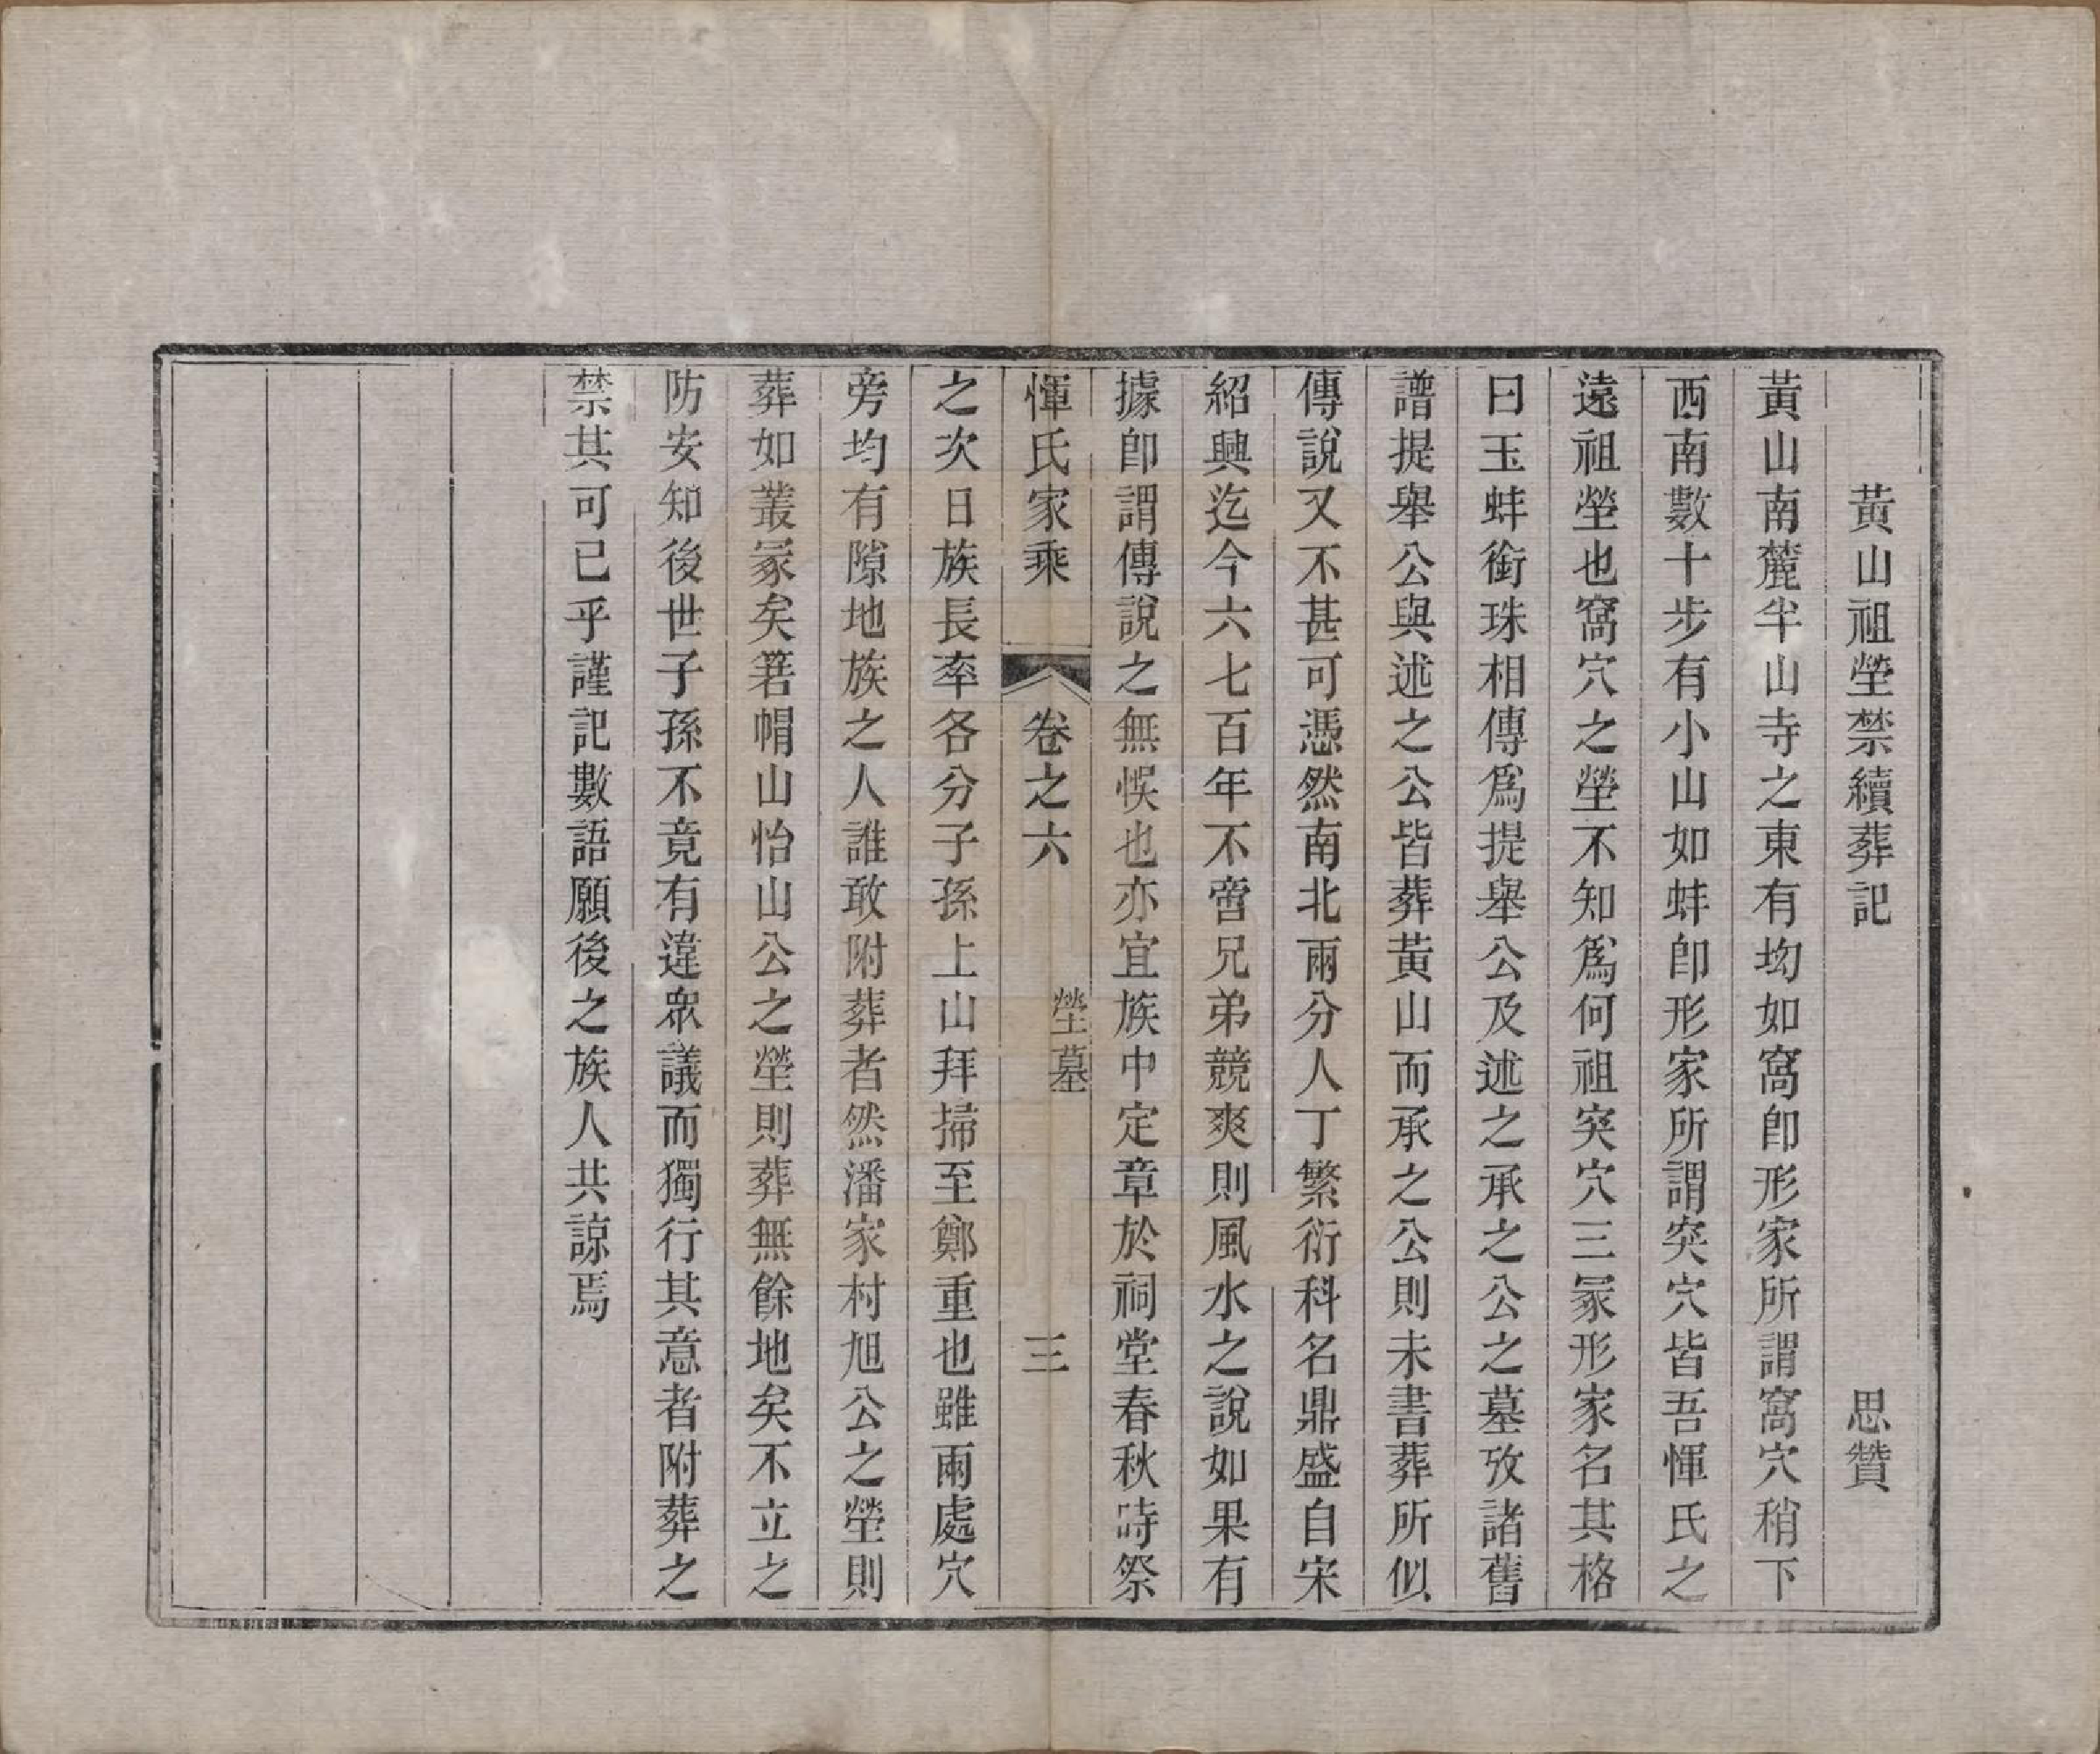 黃山祖塋禁續葬記　思贊
黃山南麓半山寺之東有坳如窩卽形家所謂窩穴稍下
西南數十步有小山如蚌卽形家所謂突穴皆吾惲氏之
遠祖塋也窩穴之塋不知爲何祖突穴三冢形家名其格
曰玉蚌銜珠相傳爲提舉公及述之承之公之墓攷諸舊
譜提舉公與述之公皆葬黃山而承之公則未書葬所似
傳說又不甚可憑然南北兩分人丁繁衍科名鼎盛自宋
紹興迄今六七百年不啻兄弟競爽則風水之說如果有
據卽謂傳說之無悞也亦宜族中定章於祠堂春秋時祭
惲氏家乘　卷之六　塋墓　三
之次日族長率各分子孫上山拜掃至鄭重也雖兩處穴
旁均有隙地族之人誰敢附葬者然潘家村旭公之塋則
葬如叢冢矣箬帽山怡山公之塋則葬無餘地矣不立之
防安知後世子孫不竟有違衆議而獨行其意者附葬之
禁其可已乎謹記數語願後之族人共諒焉